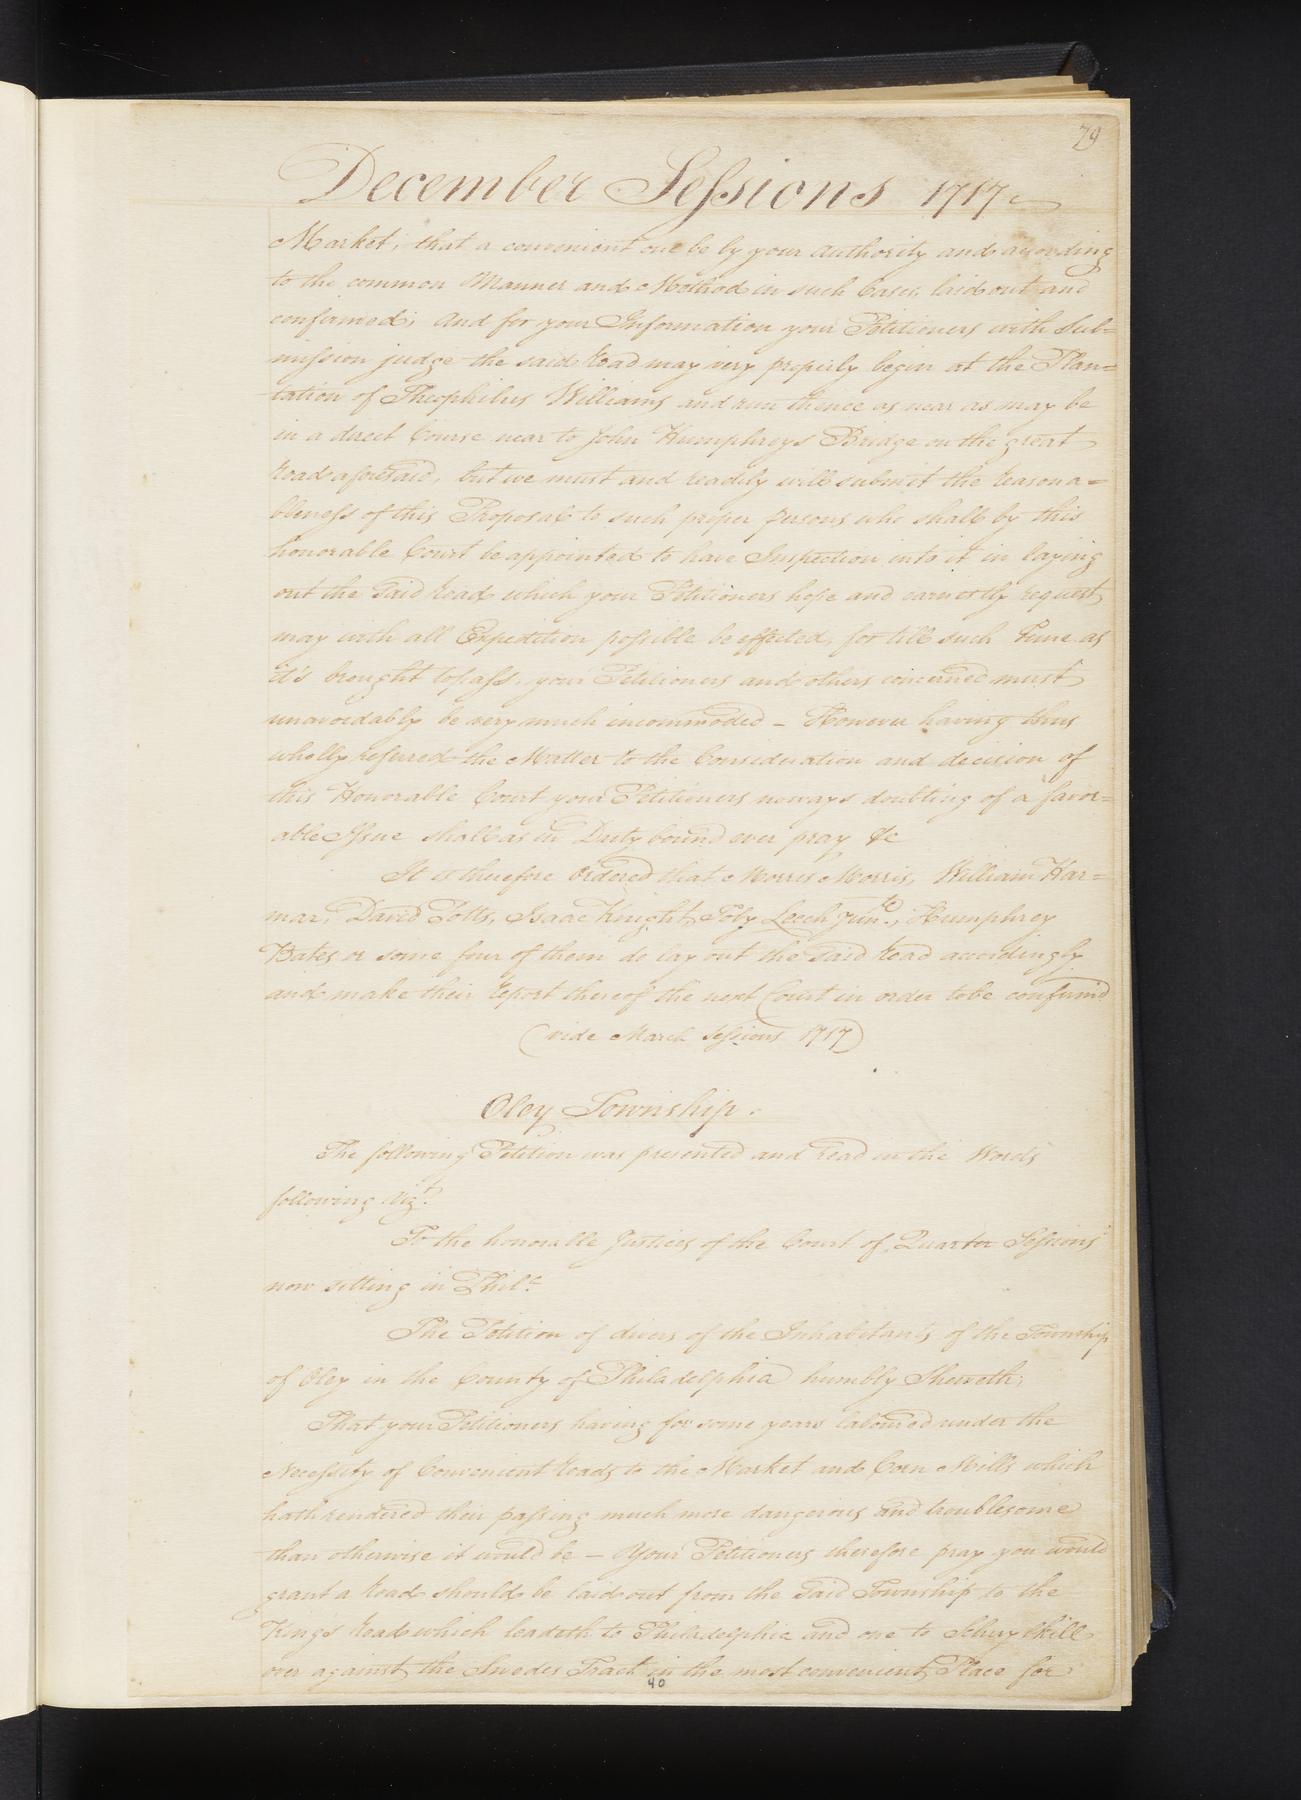 79
December Sessions 1717
Market; that a convenient one be by your authority and according
to the common Manner and Method in such Cases, laid out and
confirmed; And for your Information your Petitioners with Sub=
mission judge the said Road may very properly begin at the Plan=
tation of Theophilus Williams and run thence as near as may be
in a direct Course near to John Humphreys Bridge on the great
Road aforesaid, but we must and readily will submit the reasona=
bleness of this Proposal to such proper persons who shall by this
honorable Court be appointed to have Inspection into it in laying
out the said Road which your Petitioners hope and earnestly request
may with all Expedition possible be effected, for till such Time as
it's brought to pass, your Petitioners and others concerned must
unavoidably be very much incommoded – However having thus
wholly referred the Matter to the Consideration and decision of
this Honorable Court your Petitioners noways doubting of a favor=
able Issue shall as in Duty bound ever pray &c
It is therefore Ordered that Morris Morris, William Har=
mar, David Potts, Isaac Knight, Toby Leech Jun.r, Humphrey
Bates or some four of them do lay out the said Road accordingly
and make their Report thereof the next Court in order to be confirm'd
(vide March Sessions 1717)
Oley Township.
The following Petition was presented and read in the Words
following Viz.t
To the honorable Justices of the Court of Quarter Sessions
now sitting in Phil.a
The Petition of divers of the Inhabitants of the Township
of Oley in the County of Philadelphia humbly Sheweth;
That your Petitioners having for some years laboured under the
Necessity of Convenient Roads to the Market and Corn Mills which
hath rendered their passing much more dangerous and troublesome
than otherwise it would be – Your Petitioners therefore pray you would
grant a Road should be laid out from the said Township to the
Kings Road which leadeth to Philadelphia and one to Schuylkill
over against the Swedes Tract in the most convenient Place for
40